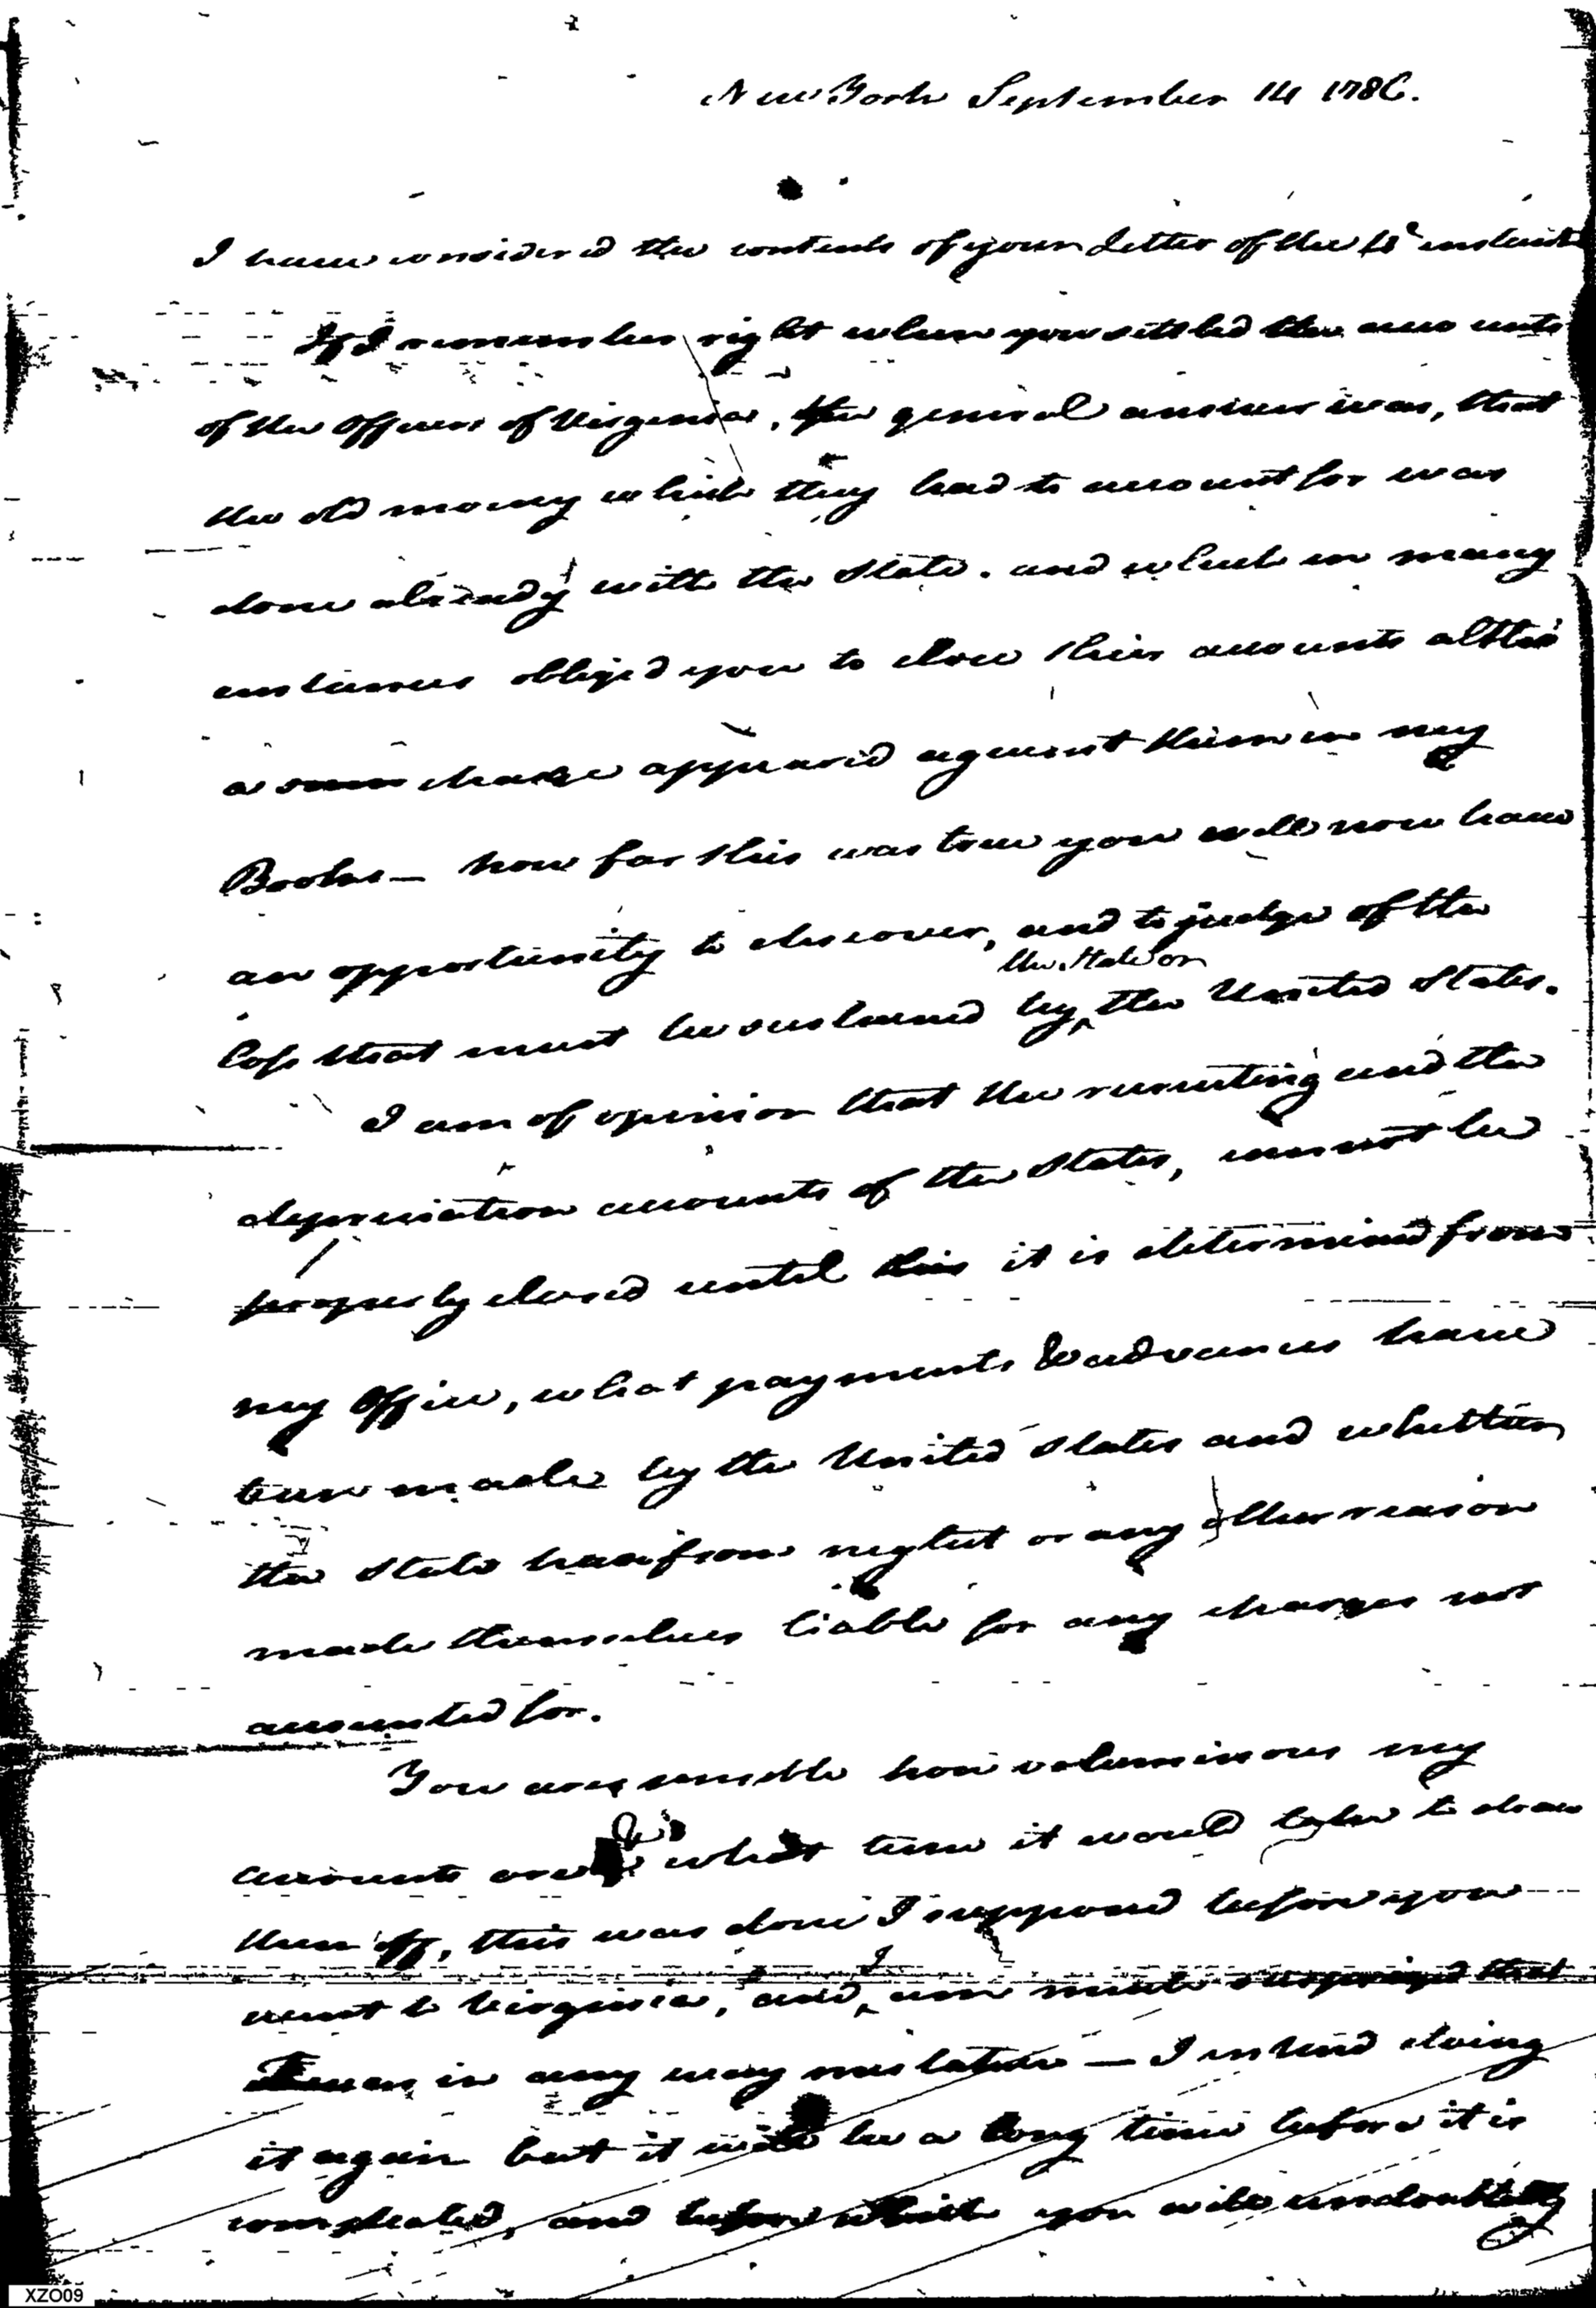 New York September 14 1786.
I have considered the contents of your Letter of the instant
If I remember right when you settled the accounts
of the Officers of Virginia, the general answer was, that
the old money which they had to account for was
done already with the State. and which in many
instances obliged you to close their accounts altho
a charge appeared against them in my
Books — how far this was true you will now have
an opportunity to discover, and to judge of the
the State or
loss that must be sustained by ^ the United States.
I am of opinion that the recruiting and the
depreciation accounts of the States, cannot be
properly closed until it is determined from
my Office, what payments & advances have
been made by the United States and whether
the State have from neglect or any other reason
made themselves liable for any charges not
accounted for.
You are sensible how voluminous my
accounts are & what time it would take to draw
them off, this was done I supposed before you
I
went to Virginia, and ^ am much surprized that
I was in any way mistaken — I intend doing
it again but it will be a long time before it is
compleated, and before which you will undoubtedly
XZO09